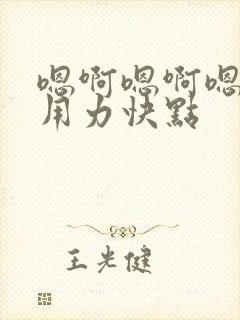 嗯啊嗯啊嗯
用力快點
王光健